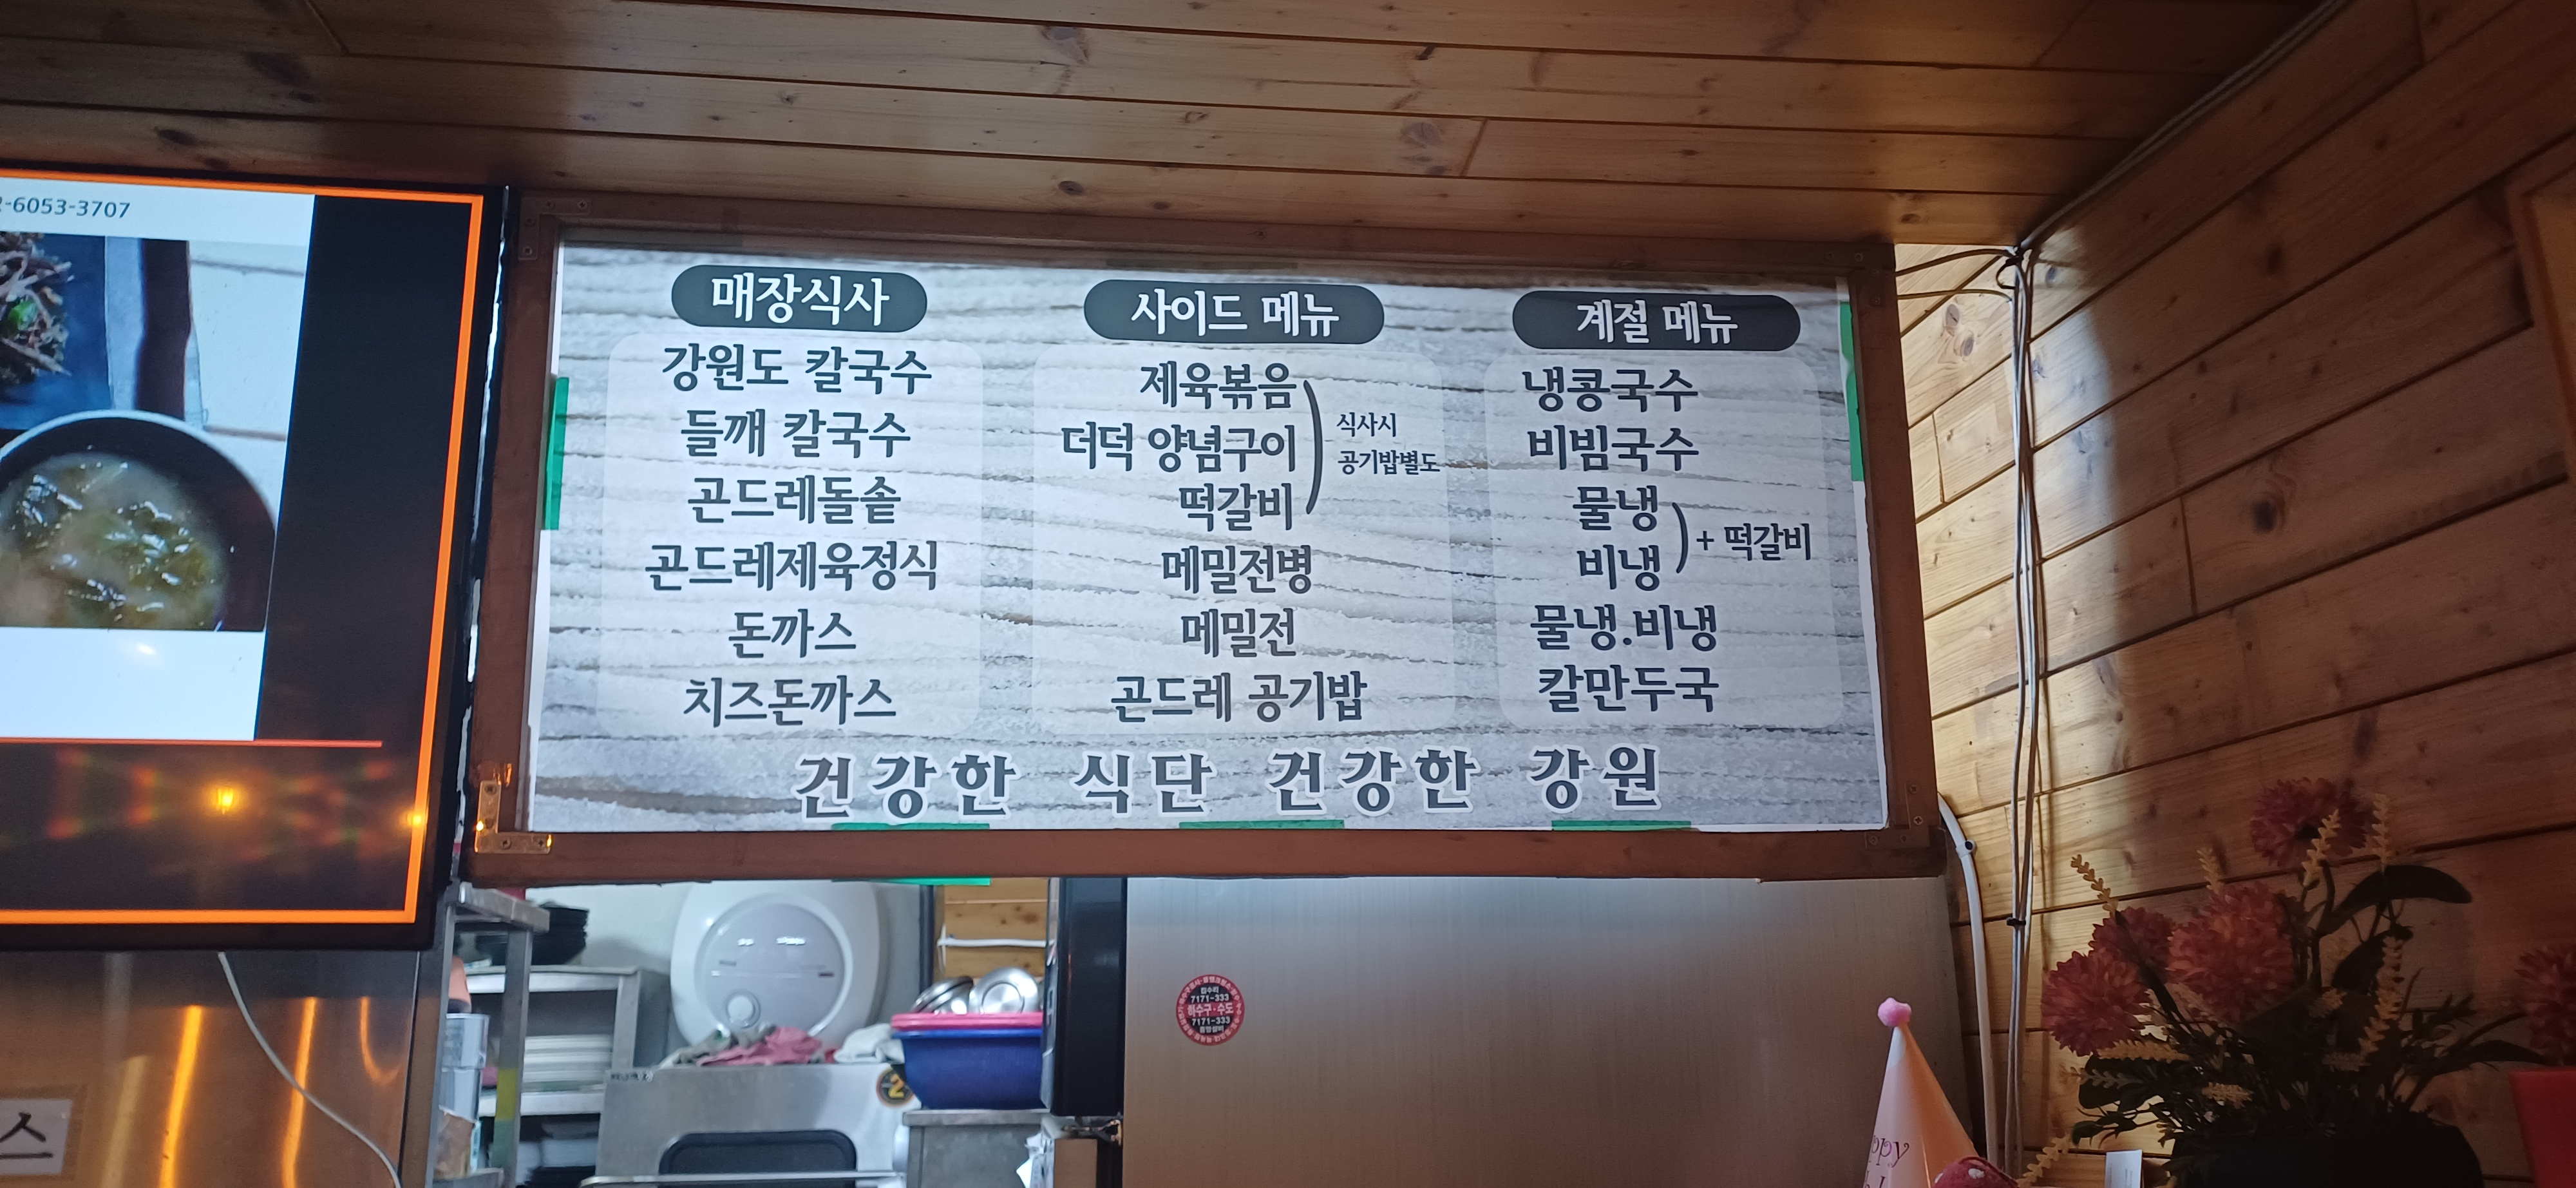 -6053-3707
매장식사
강원도 칼국수
들깨 칼국수
곤드레돌솥
곤드레제육정식
돈까스
치즈돈까스
사이드 메뉴
제육볶음
더덕 양념구이
떡갈비
식사시
공기밥별도
메밀전병
메밀전
곤드레 공기밥
계절 메뉴
냉콩국수
비빔국수
물냉
비냉
+ 떡갈비
물냉.비냉
칼만두국
건강한 식단 건강한 강원
7171-333
하수구·수도
7171-333
스